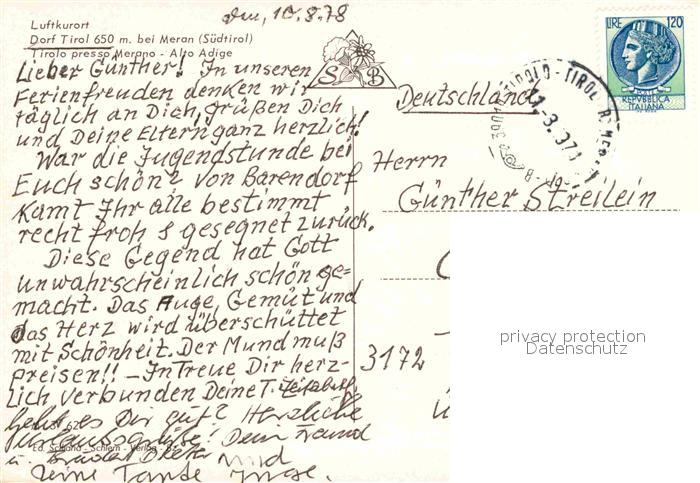 den, 10.8.78
Luftkurort
Dorf Tirol 650 m. bei Meran (Südtirol)
Tirolo presso Merano - Alto Adige
Lieber Günther! In unseren
Ferienfreuden denken wir
täglich an Dich, grüßen Dich
und Deine Eltern ganz herzlich!
War die Jugendstunde bei
Euch schön? Von Barendorf
kamt Ihr alle bestimmt
recht froh & gesegnet zurück.
Diese Gegend hat Gott
unwahrscheinlich schön ge-
macht. Das Auge, Gemüt und
das Herz wird überschüttet
mit Schönheit. Der Mund muß
preisen!! - In Treue Dir herz-
lich verbunden Deine T.
geht es Dir gut? Herzliche
Urlaubsgrüße! Dein Freund
u. Bruder und
Deine Tante Inge.
S B
LIRE 120
REPVBBLICA
ITALIANA
Deutschland
Herrn
Günther Streilein
3172
privacy protection
Datenschutz